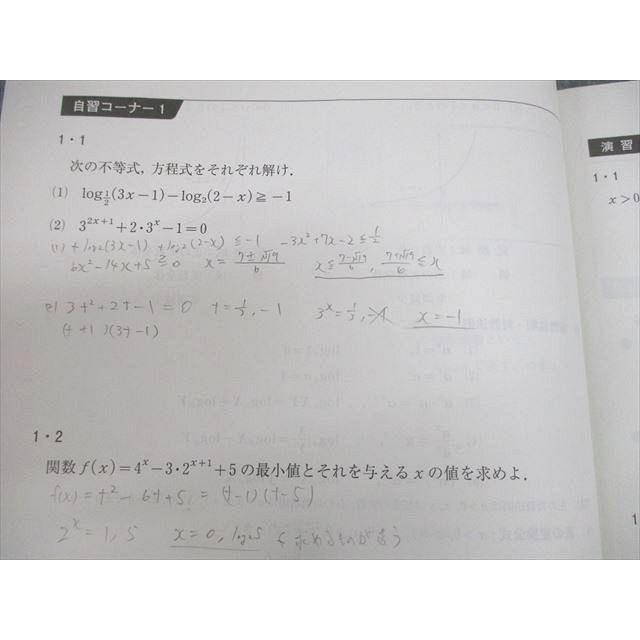 自習コーナー 1
1・1
次の不等式，方程式をそれぞれ解け．
(1) log_{1/2}(3x−1)−log₂(2−x)≧−1
(2) 3^{2x+1}+2・3^x−1=0
(1) + log₂(3x−1) + log₂(2−x) ≦ −1 −3x²+7x−2 ≦ 1/2
6x²−14x+5 ≧ 0 x = (7±√19)/6 x≦(7−√19)/6, (7+√19)/6≦x
(2) 3t²+2t−1=0 t=1/3, −1 3^x=1/3, −1 x=−1
(t+1)(3t−1)
1・2
関数 f(x)=4^x−3・2^{x+1}+5 の最小値とそれを与える x の値を求めよ．
f(x)=t²−6t+5 = (t−1)(t−5)
2^x=1, 5 x=0, log₂5 求めるものが違う
演習
1・1
x>0
1